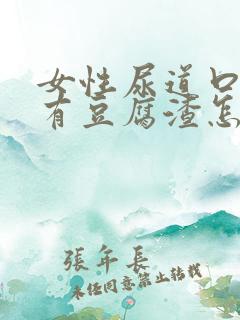 女性尿道口
有豆腐渣怎
張年長
未经同意禁止转载